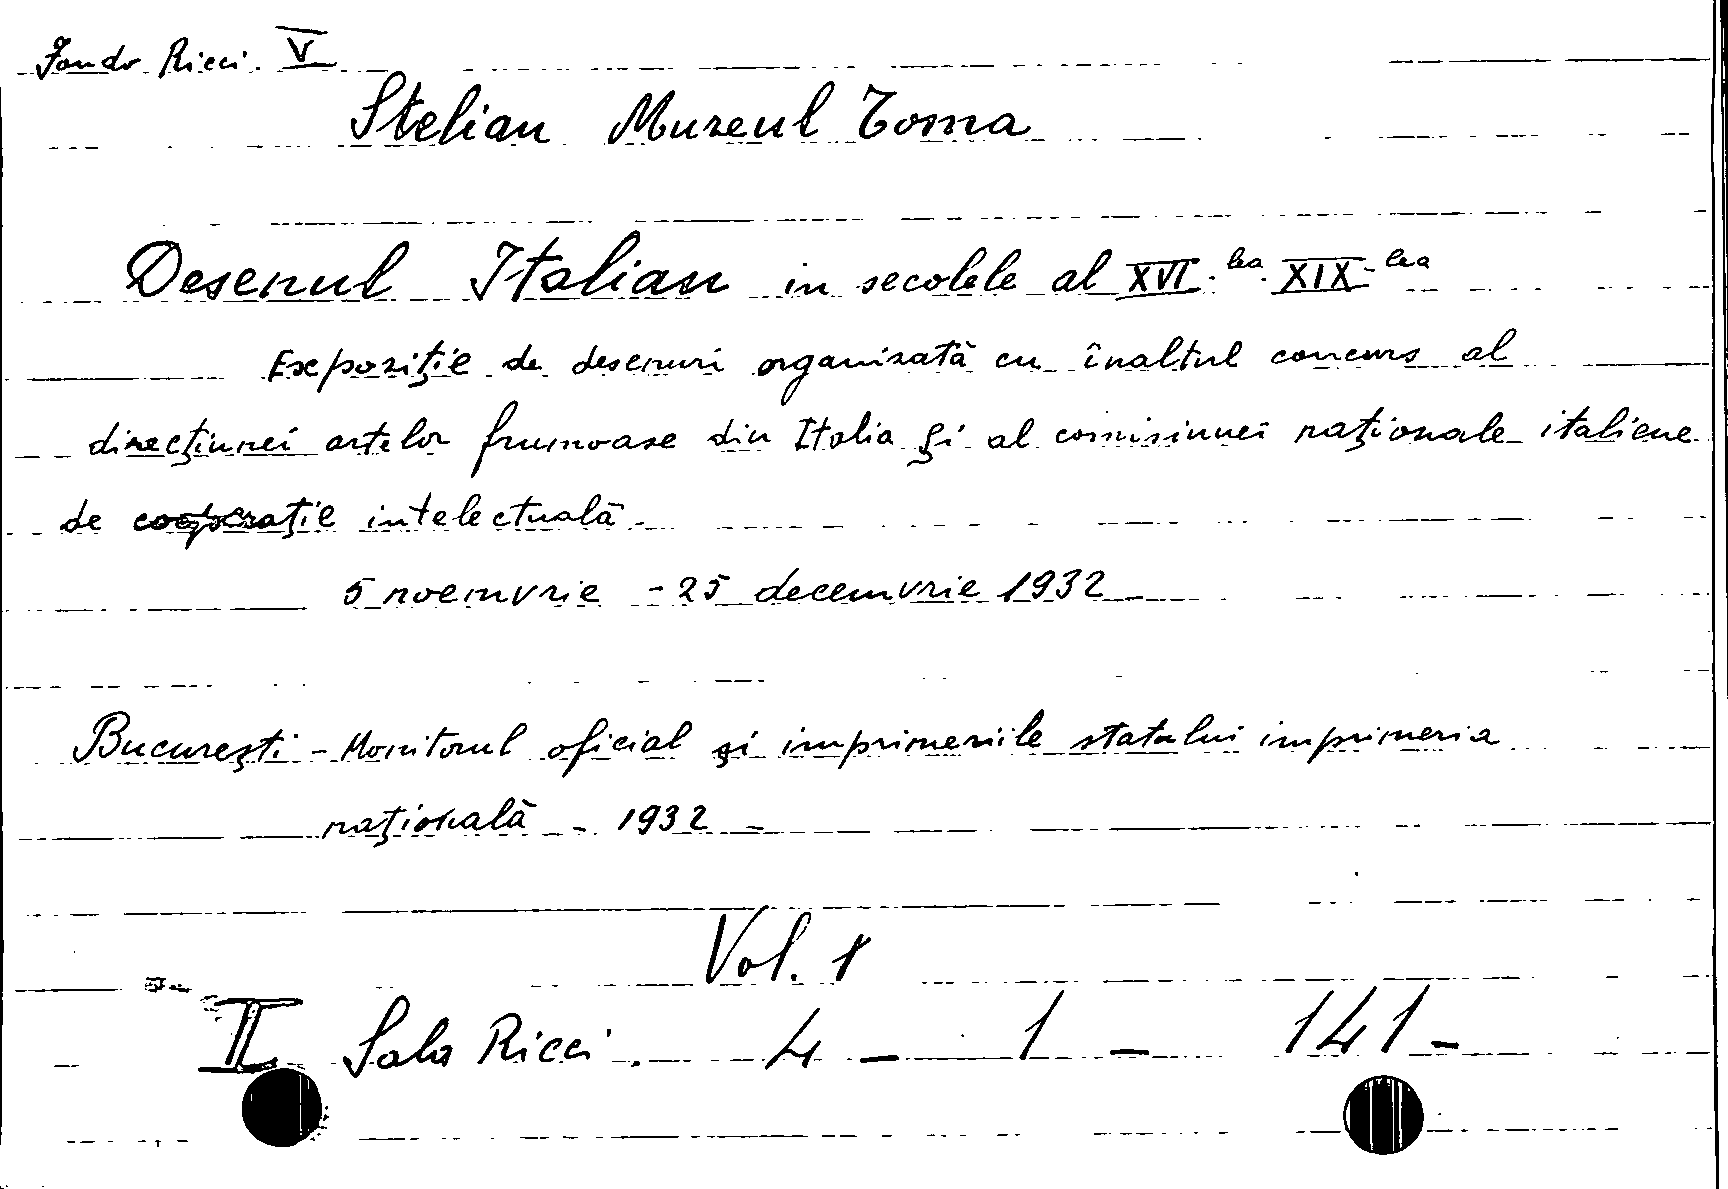 Fondo Ricci. V
Stelian Muzeul Toma
Desenul Italian in secolele al XVI.lea. XIX-lea
Expoziţie de desenuri organizată cu înaltul concurs al
direcţiunei artelor frumoase din Italia şi al comisiunei naţionale italiene
de cooperaţie intelectuală.
5 noemvrie - 25 decemvrie 1932
Bucureşti - Monitorul oficial şi imprimeriile statului imprimeria
naţională - 1932 -
Vol. 1
II Sala Ricci. 4 - 1 - 141 -